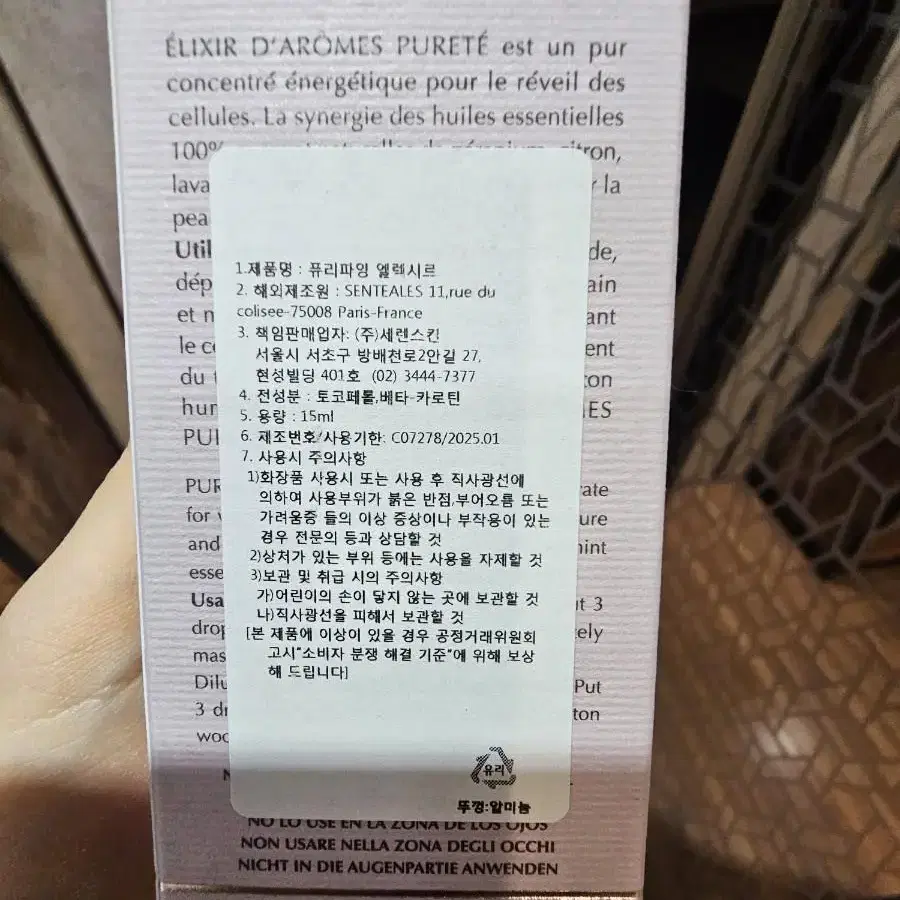 ÉLIXIR D'ARÔMES PURETÉ est un pur
concentré énergétique pour le réveil des
cellules. La synergie des huiles essentielles
100%
citron,
la
Util
de,
dép
ain
et
ant
le
ent
du
ton
hum
MES
PUR
1.제품명 : 퓨리파잉 엘렉시르
2. 해외제조원 : SENTEALES 11,rue du
colisee-75008 Paris-France
3. 책임판매업자: (주)세렌스킨
서울시 서초구 방배천로2안길 27,
현성빌딩 401호 (02) 3444-7377
4. 전성분 : 토코페롤,베타-카로틴
5. 용량 : 15ml
6. 제조번호/사용기한: C07278/2025.01
7. 사용시 주의사항
1)화장품 사용시 또는 사용 후 직사광선에
의하여 사용부위가 붉은 반점,부어오름 또는
가려움증 들의 이상 증상이나 부작용이 있는
경우 전문의 등과 상담할 것
2)상처가 있는 부위 등에는 사용을 자제할 것
3)보관 및 취급 시의 주의사항
가)어린이의 손이 닿지 않는 곳에 보관할 것
나)직사광선을 피해서 보관할 것
[본 제품에 이상이 있을 경우 공정거래위원회
고시"소비자 분쟁 해결 기준"에 위해 보상
해 드립니다]
유리
뚜껑:알미늄
for
and
Put
3
NO LO USE EN LA ZONA DE LOS OJOS
NON USARE NELLA ZONA DEGLI OCCHI
NICHT IN DIE AUGENPARTIE ANWENDEN